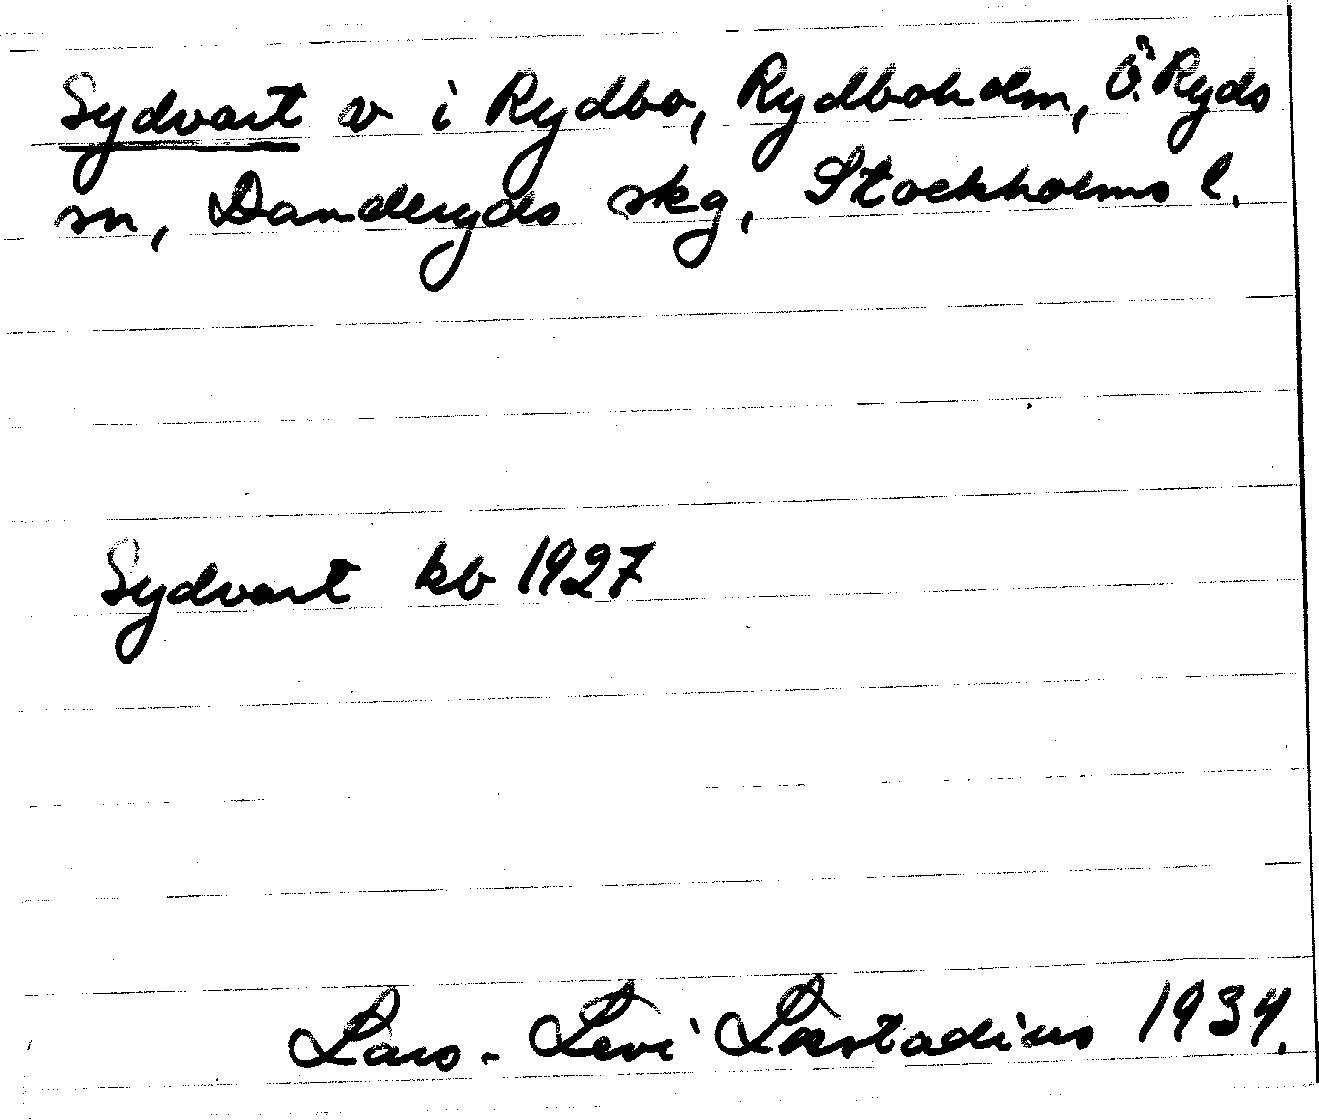 Sydvart v i Rydbo, Rydboholm, Ö. Ryds
sn, Danderyds skg, Stockholms l.
Sydvart kb 1927
Lars-Levi Læstadius 1934.